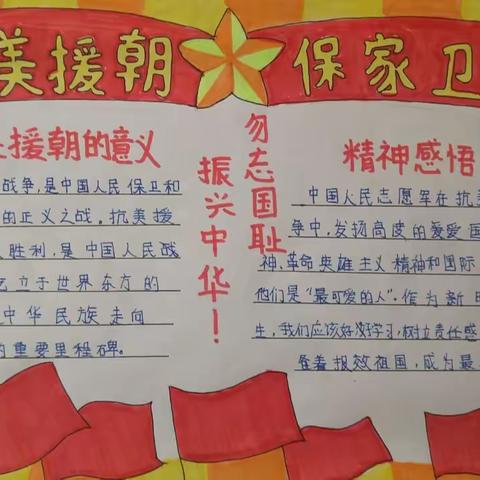 美援朝
保家卫
援朝的意义
战争,是中国人民保卫和
的正义之战。抗美援
胜利,是中国人民战
立于世界东方的
中华民族走向
的重要里程碑。
勿志国耻
振兴中华!
精神感悟
中国人民志愿军在抗
争中,发扬高度的爱爱国
神,革命英雄主义精神和国际
他们是“最可爱的人”.作为新
生,我们应该好好学习,树立责任感
着报效祖国,成为最